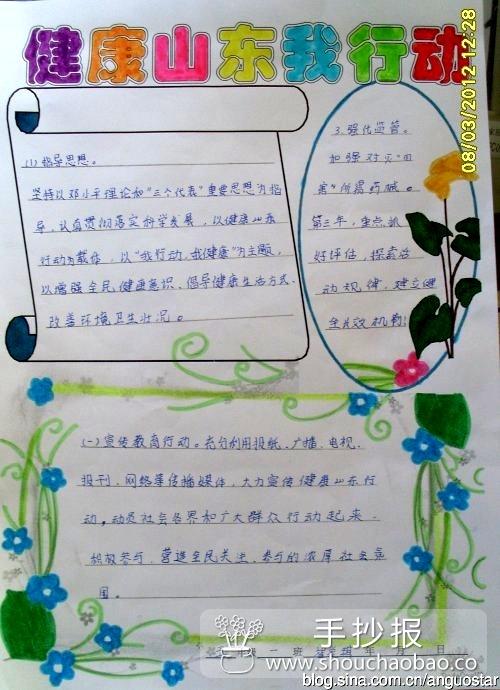 健康山东我行动
08/03/2012 12:28
(1)指导思想。
坚持以邓小平理论和"三个代表"重要思想为指
导，认真贯彻落实科学发展，以健康山东
行动为载体，以"我行动，我健康"为主题，
以增强全民健康意识、倡导健康生活方式、
改善环境卫生状况。
3.强化监管。
加强对灭"四
害"所易药械。
第三年，重点抓
好评估，探索活
动规律，建立健
全长效机制
(一)宣传教育行动。充分利用报纸、广播、电视、
报刊、网络等传播媒体，大力宣传健康山东行
动。动员社会各界和广大群众行动起来，
积极参与，营造全民关注、参与的浓厚社会氛
围。
级一班 年 月 日
手抄报
www.shouchaobao.co
blog.sina.com.cn/anguostar